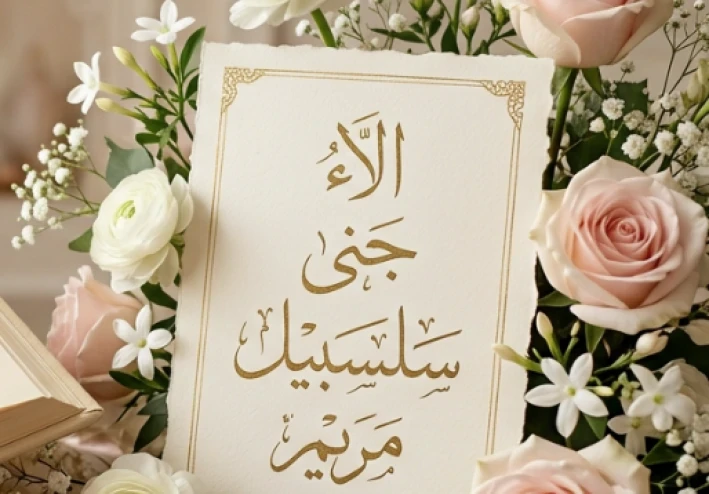 الَاءُ
جَنى
سَلسَبيل
مَريَم